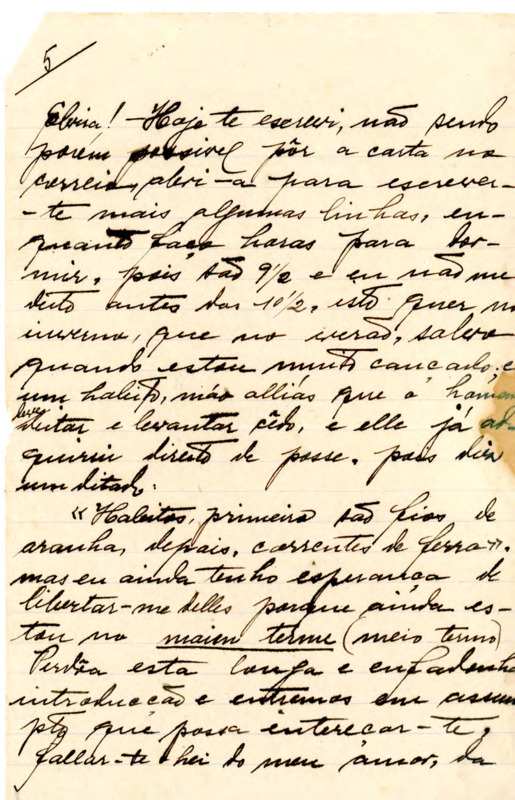 5
Elvira! - Hoje te escrevi, não sendo
porem possivel pôr a carta no
correio, abri-a para escrever-
-te mais algumas linhas, en-
quanto faço horas para dor-
mir, pois são 9 1/2 e eu não me
deito antes das 10 1/2, isto quer no
inverno, que no verão, salvo
quando estou muito cançado, é
um habito, máo alliás que o homem
deve
deitar e levantar cêdo, e elle já ad-
quiriu direito de posse, pois diz
um ditado:
"Habitos, primeiro são fios de
aranha, depois, correntes de ferro".
mas eu ainda tenho esperança de
libertar-me delles porque ainda es-
tou no maien terme (meio termo)
Perdôa esta longa e enfadonha
introducção e entremos em assum
pto que possa intereçar-te,
fallar-te-hei do meu amor, da